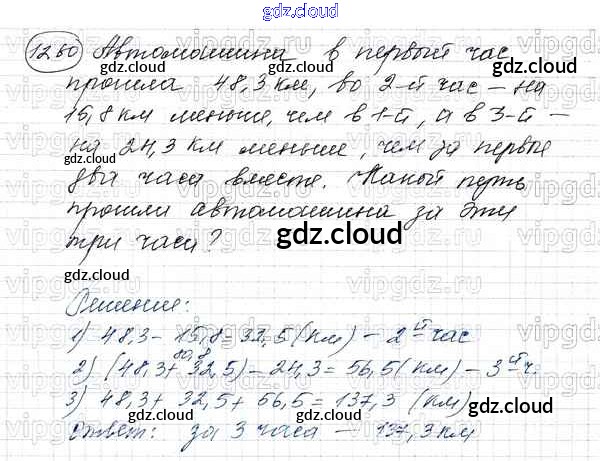 gdz.cloud
1260 Автомашина в первый час
прошла 48,3 км, во 2-й час – на
15,8 км меньше, чем в 1-й, а в 3-й –
на 24,3 км меньше, чем за первые
два часа вместе. Какой путь
прошла автомашина за эти
три часа?
gdz.cloud
gdz.cloud
Решение:
1) 48,3 – 15,8 = 32,5 (км) – 2й час
80,8
2) (48,3 + 32,5) – 24,3 = 56,5 (км) – 3й ч.
3) 48,3 + 32,5 + 56,5 = 137,3 (км)
Ответ: за 3 часа – 137,3 км
gdz.cloud
gdz.cloud